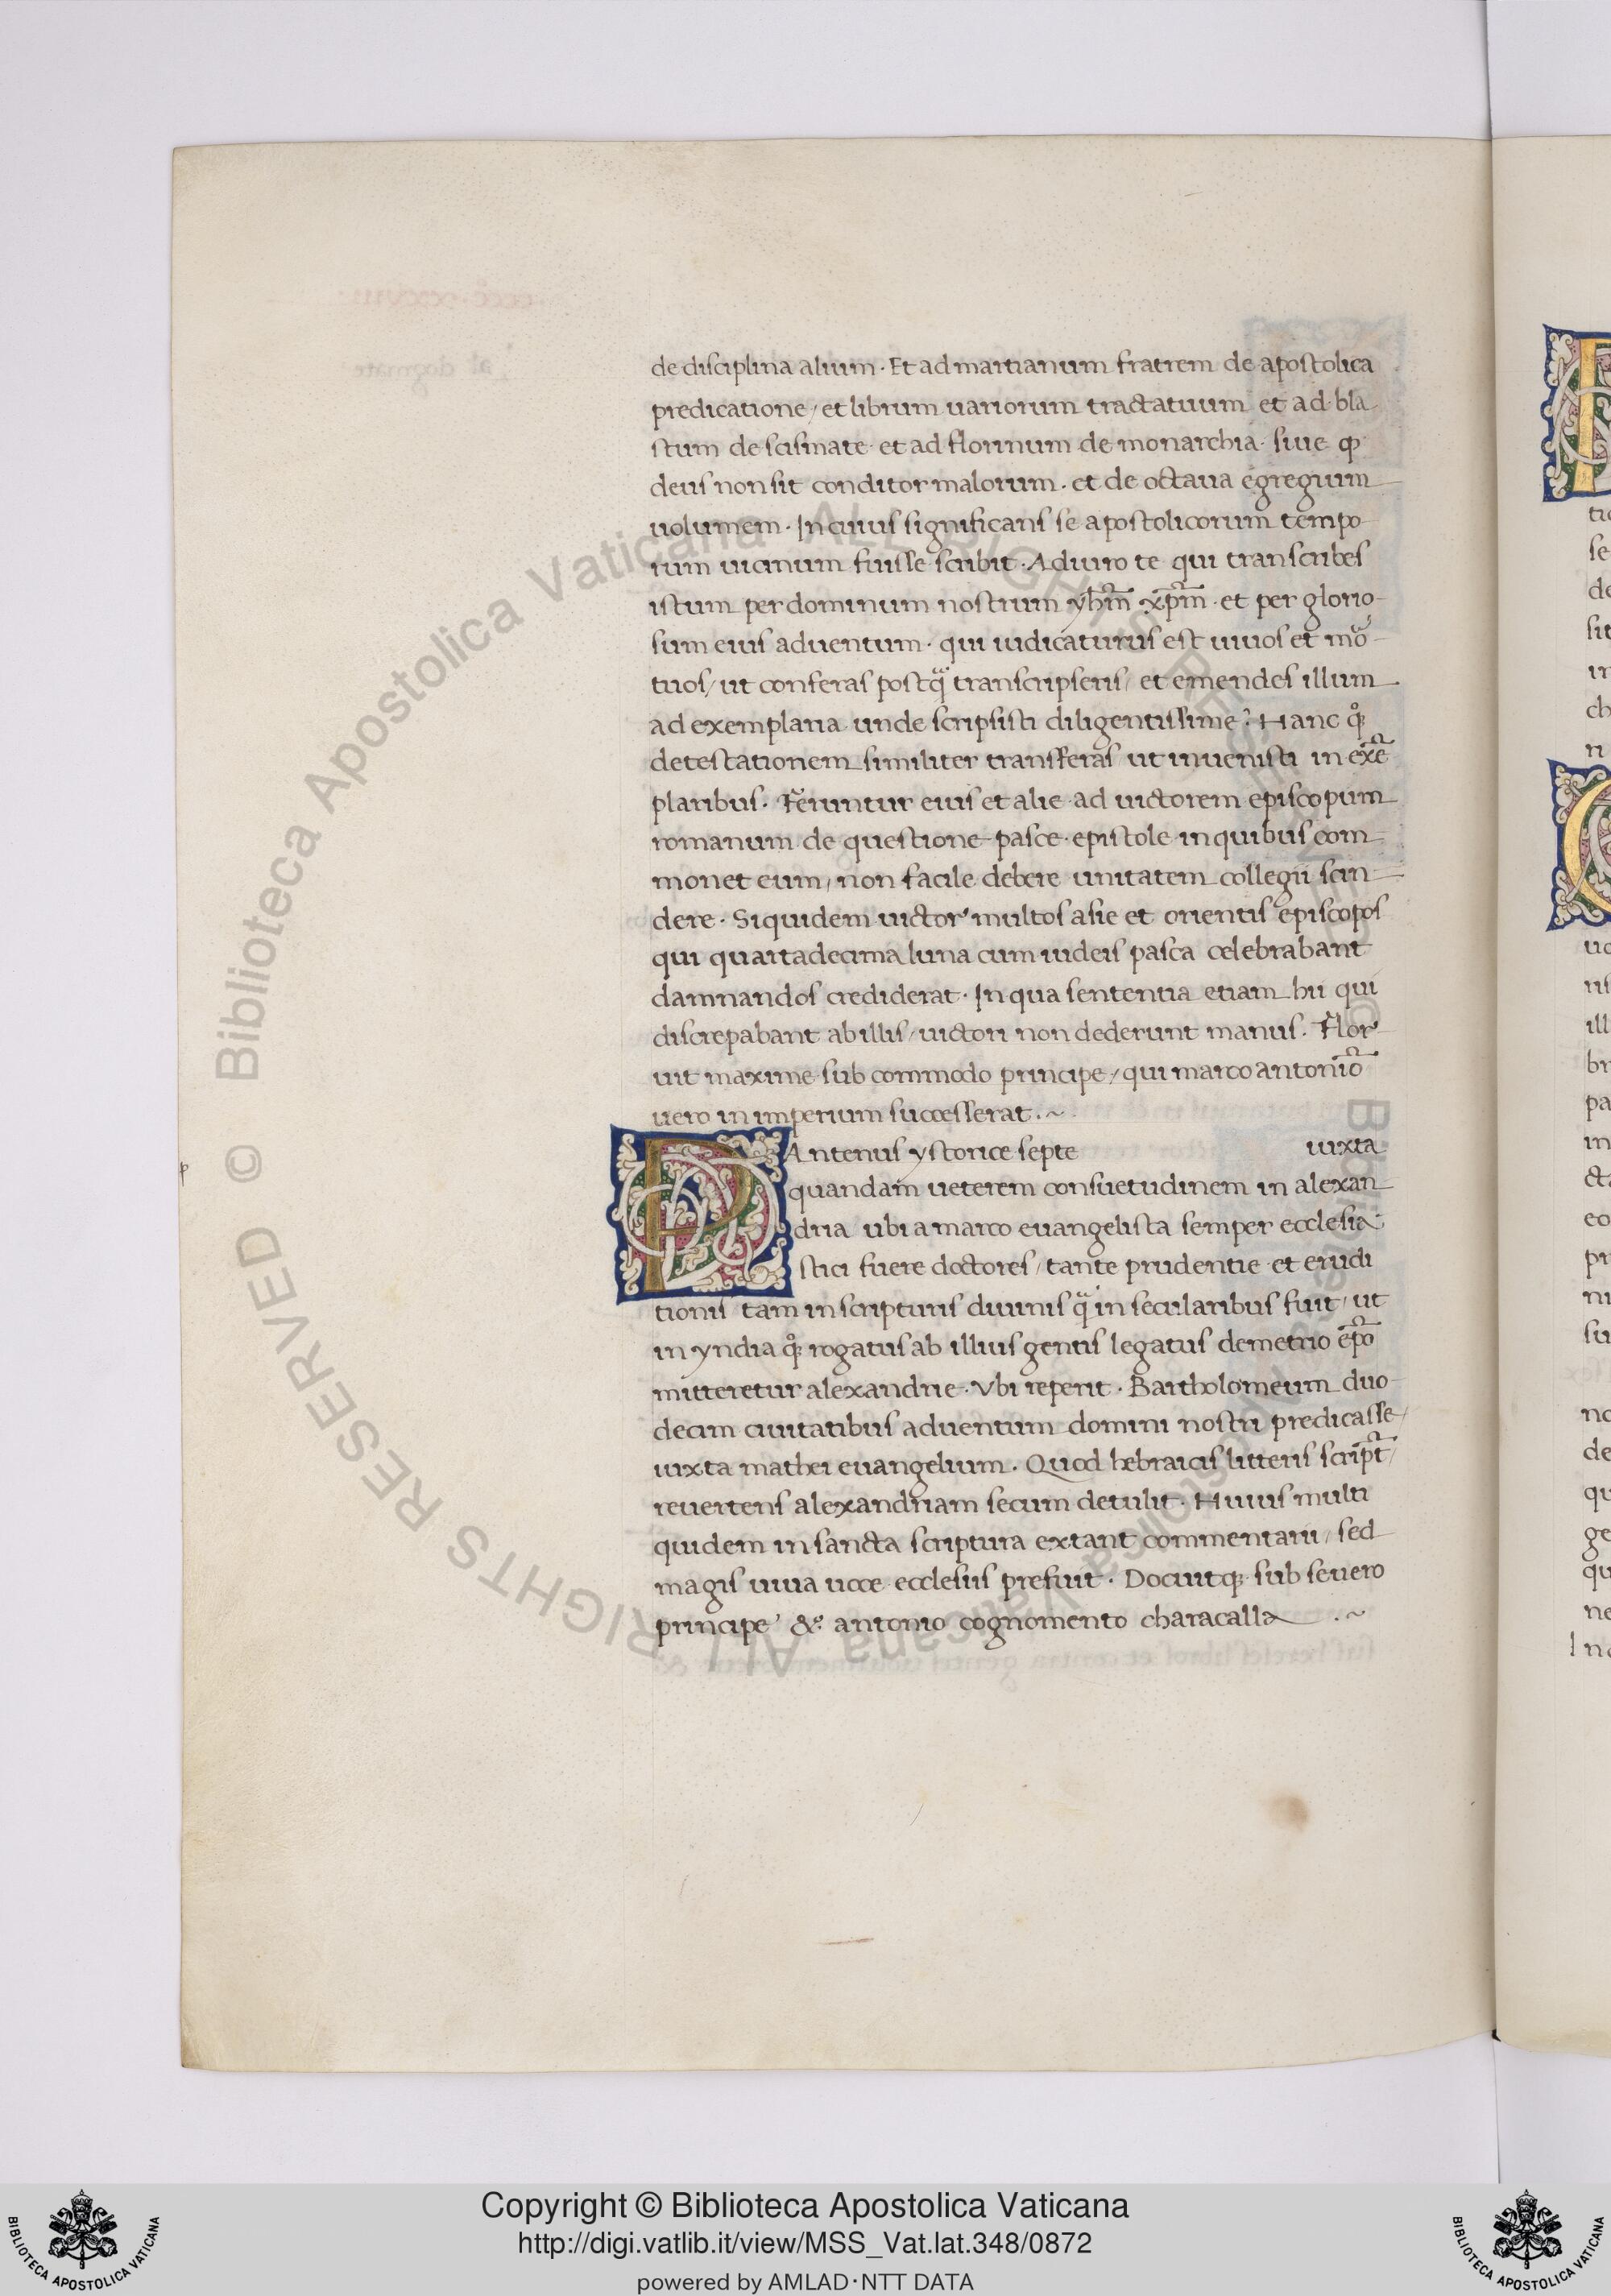 de disciplina alium · Et ad martianum fratrem de apostolica
predicatione / et librum uariorum tractatuum et ad bla
stum de scismate · et ad florinum de monarchia · siue ꝙ
deus non sit conditor malorum · et de octaua egregium
uolumem · In cuius significans se apostolicorum tempo
rum uicinum fuisse scribit · Adiuro te qui transcribes
istum per dominum nostrum yhm̄ xp̄m · et per glorio
sum eius aduentum · qui iudicaturus est uiuos et mo
tuos / ut conferas postq̃ transcripseris / et emendes illum
ad exemplaria unde scripsisti diligentissime : Hanc qͦꝫ
detestationem similiter transferas ut inuenisti in exē
plaribus · Feruntur eius et alie ad uictorem episcopum
romanum de questione pasce · epistole in quibus com
monet eum / non facile debere unitatem collegii scin
dere · Siquidem uictor multos asie et orientis episcopos
qui quartadecima luna cum iudeis pasca celebrabant
damnandos crediderat · In qua sententia etiam hii qui
discrepabant ab illis / uictori non dederunt manus · Flor
uit maxime sub commodo principe / qui marco antonīo
uero in imperium successerat . ~
PAntenus ystorice septe iuxta
p
quandam ueterem consuetudinem in alexan
dria ubi a marco euangelista semper ecclesia
stici fuere doctores / tante prudentie et erudi
tionis tam in scripturis diuinis q̃ in secularibus fuit / ut
in yndia qͦꝫ rogatus ab illius gentis legatus demetrio ep̄o
mitteretur alexandrie · Vbi reperit · Bartholomeum duo
decim ciuitatibus aduentum domini nostri predicasse /
iuxta mathei euangelium · Quod hebraicis litteris script̄ /
reuertens alexandriam secum detulit · Huius multi
quidem in sancta scriptura extant commentarii / sed
magis uiua uoce ecclesiis prefuit · Docuitqꝫ sub seuero
principe & antonio cognomento characalla . ~
© Biblioteca Apostolica Vaticana ALL RIGHTS RESERVED © Biblioteca Apostolica Vaticana ALL RIGHTS RESERVED
Copyright © Biblioteca Apostolica Vaticana
http://digi.vatlib.it/view/MSS_Vat.lat.348/0872
powered by AMLAD·NTT DATA
BIBLIOTECA APOSTOLICA VATICANA
BIBLIOTECA APOSTOLICA VATICANA